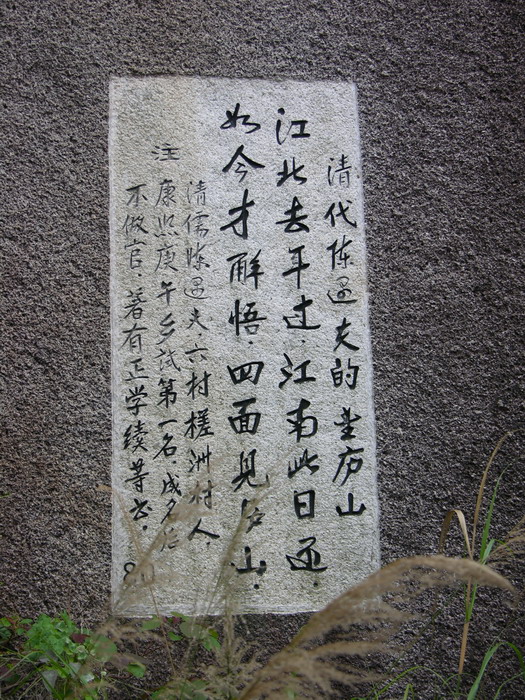 清代陈遇夫的庐山
江北去年过.江南此日还.
如今才解悟.四面见庐山.
注
清儒陈遇夫六村槎洲村人.
康熙庚午乡试第一名.成名后
不做官.著有正学续等书.